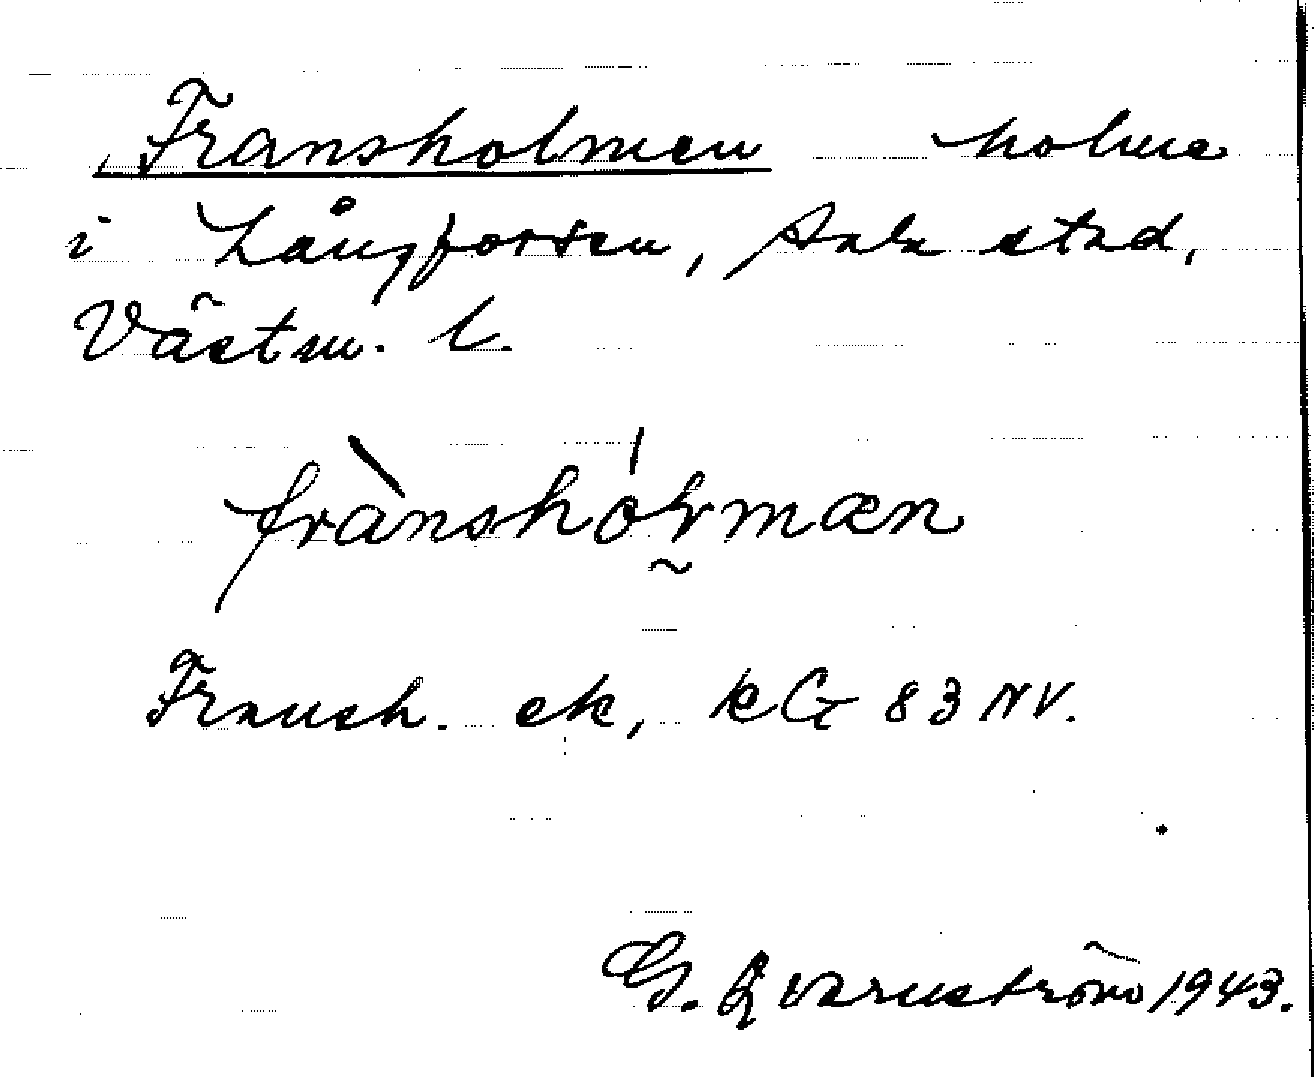 Fransholmen holme
i Långforsen, Sala stad,
Västm. l.
frànshólmæn
Fransh. ek, kG 83 NV.
G. Qvarnström 1943.